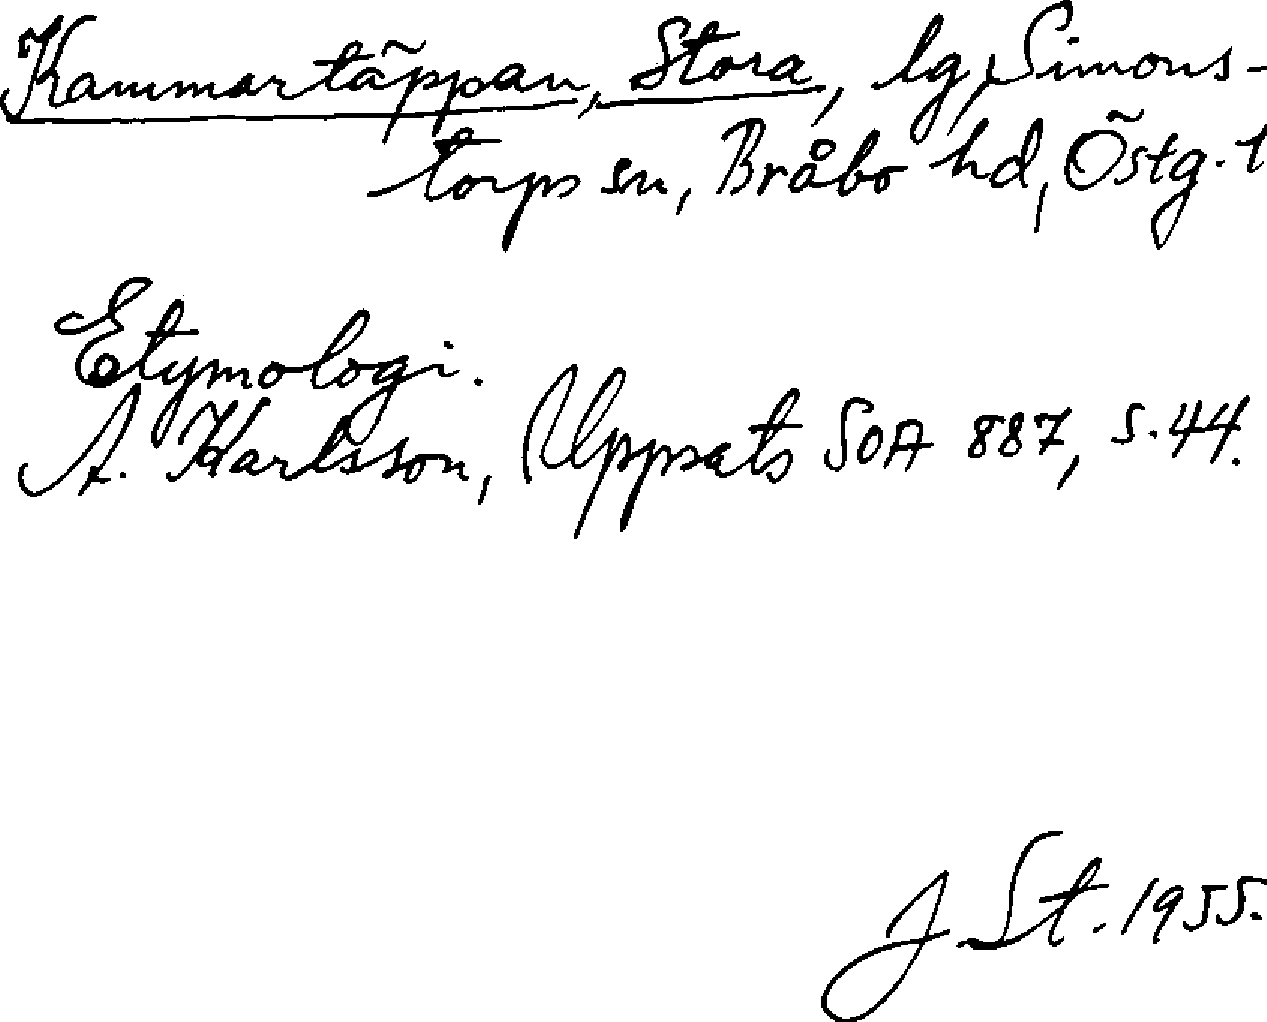 Kammartäppan, Stora, lg, Simons-
torps sn, Bråbo hd, Östg. l
Etymologi.
A. Karlsson, Uppsats SOA 887, s. 44.
J. St. 1955.